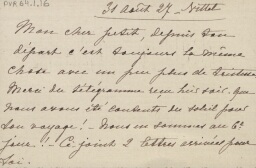 DVR 64.1.16
31 août 27 - Nittel
Mon cher petit, depuis ton
départ c'est toujours la même
chose avec un peu plus de tristesse
Merci du télégramme reçu hier soir. Que
nous avons été contents du soleil pour
ton voyage! - Nous en sommes au 6e
jour! - Ci joint 2 lettres arrivées pour
toi.